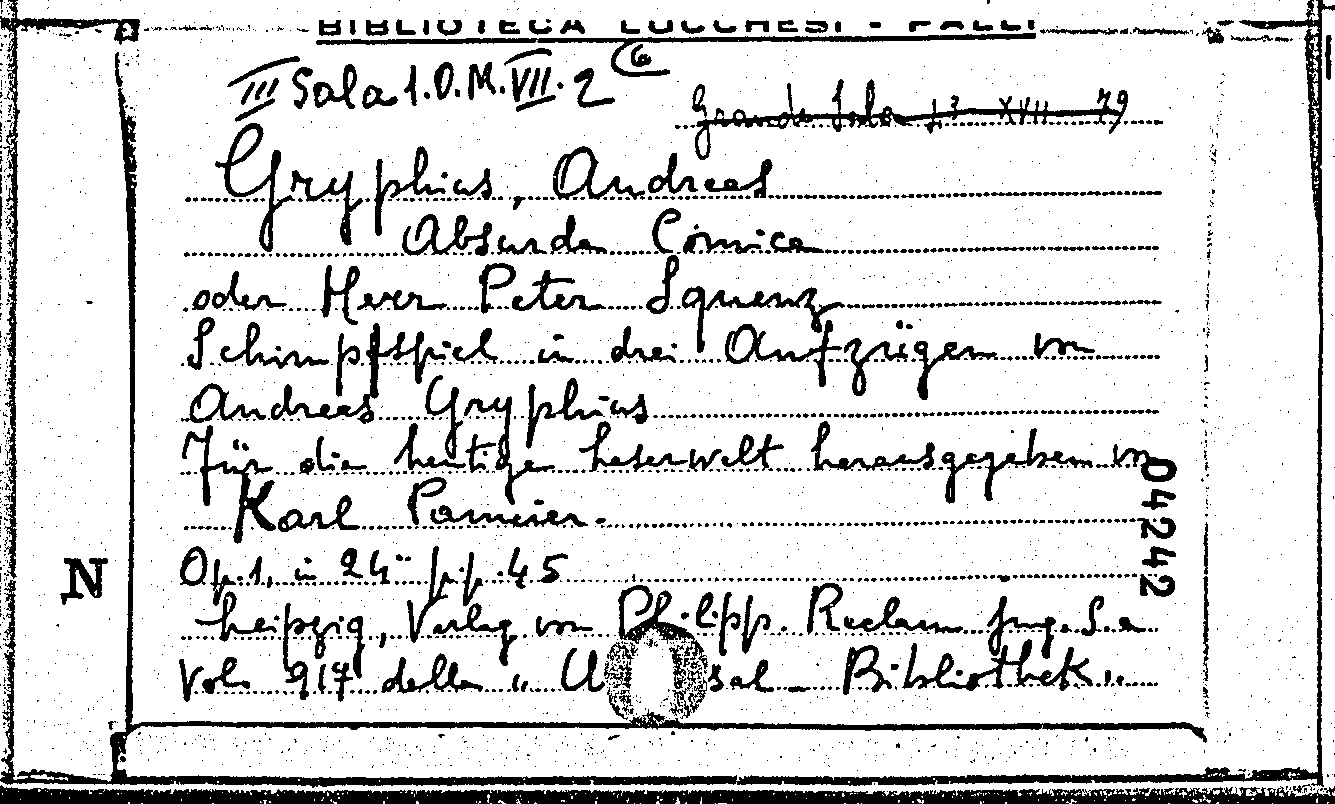 BIBLIOTECA LUCCHESI - PALLI
III Sala 1.O.M.VII.2 (6
Grande Sala L² XVII 79
Gryphius, Andreas
Absurda Comica
oder Herr Peter Squenz
Schimpfspiel in drei Aufzügen von
Andreas Gryphius
Für die heutige Leserwelt herausgegeben von
Karl Pannier.
Op. 1, in 24° pp. 45
Leipzig, Verlag von Philipp. Reclam jung. S.a
Vol. 917 della "U sal - Bibliothek"
04242
N